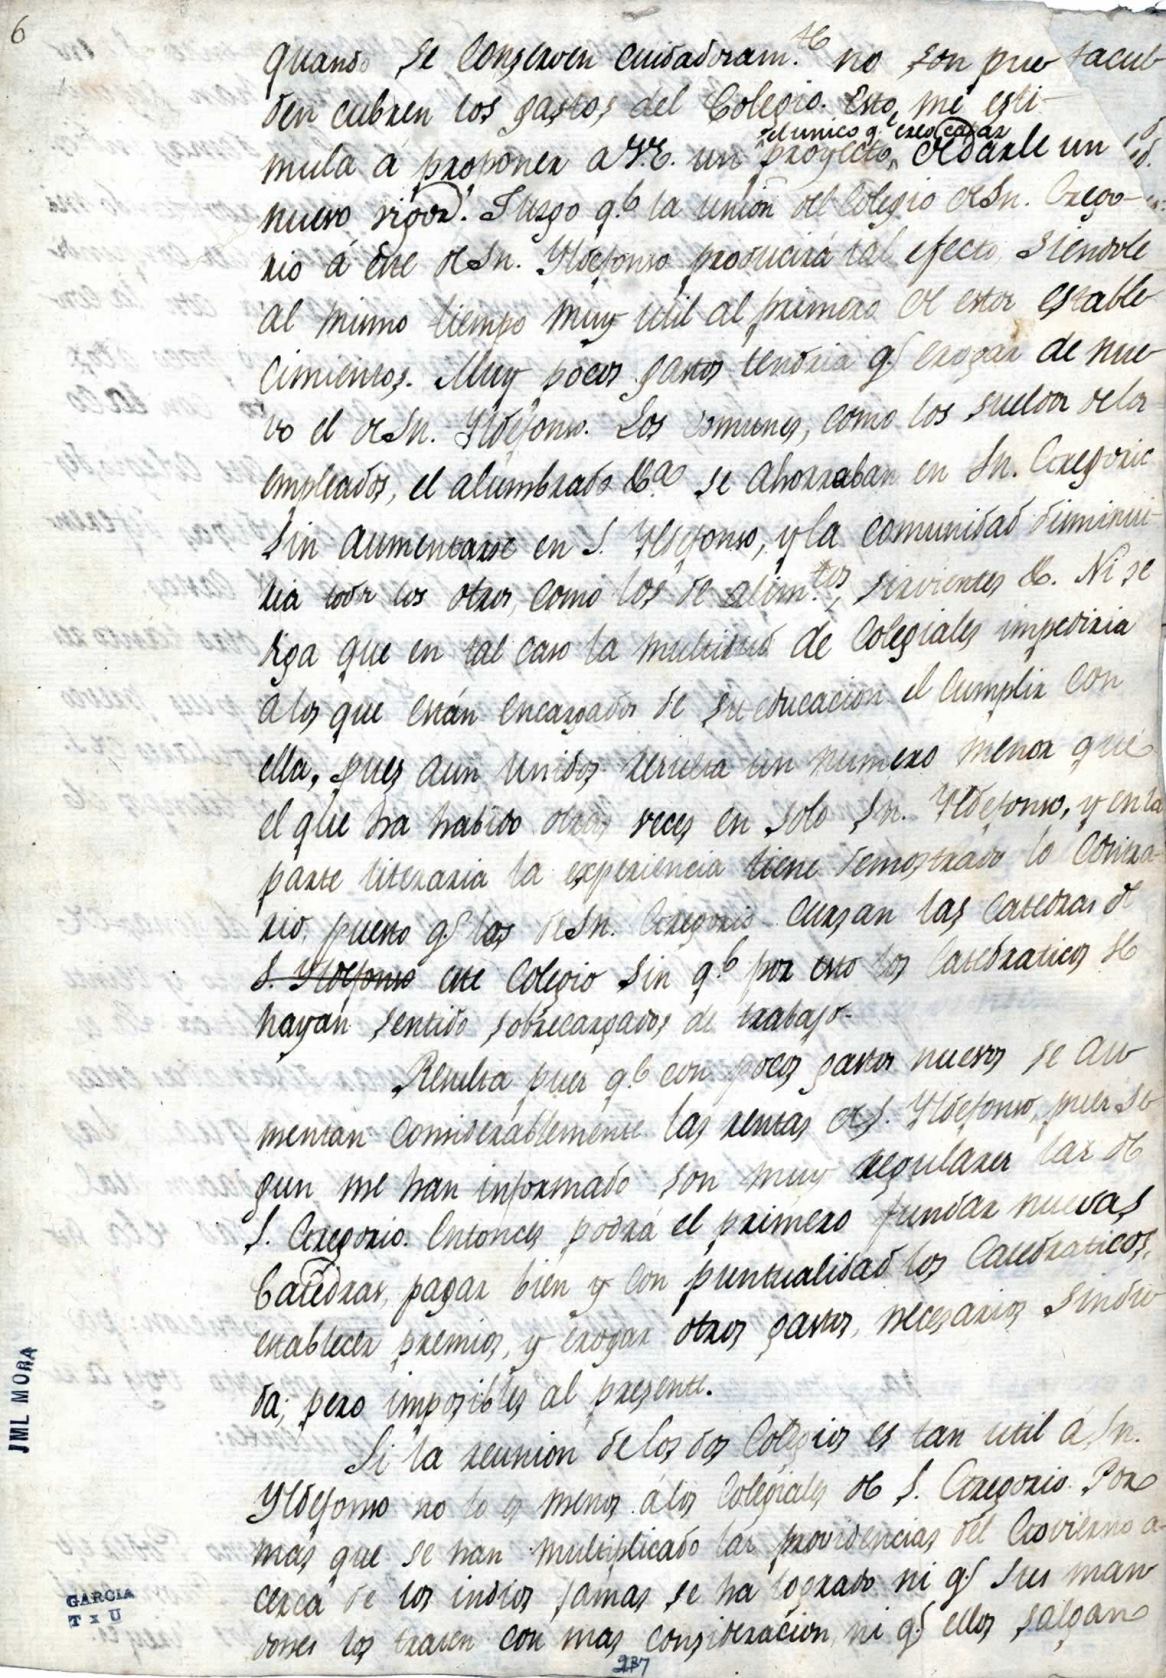 6
quando se conserven cuidadosam.te no son pue
den cubren los gastos del Colegio. Esto me esti-
el unico q.e creo capaz
mula á proponer a V.E. un proyecto, de darle un
nuevo vigor. Juzgo q.e la union del Colegio de Sn. Grego-
rio á éste de Sn. Yldefonso producirá tal efecto, siendole
al mismo tiempo muy util al primero de estos estable
cimientos. Muy pocos gastos tendria q.e erogar de nue
vo el de Sn. Yldefonso. Los comunes, como los sueldos delos
empleados, el alumbrado &.a se ahorraban en Sn. Gregorio
sin aumentarse en S. Yldefonso, y la comunidad diminui-
ria todos los otros, como los de alim.tos, sirvientes &. Ni se
diga que en tal caso la multitud de Colegiales impediria
a los que están encargados de su educacion el cumplir con
ella, pues aun unidos resulta un numero menor que
el que ha habido otras veces en solo Sn. Yldefonso, y en la
parte literaria la experiencia tiene demostrado lo contra-
rio, puesto q.e los de Sn. Gregorio cursan las catedras de
S. Yldefonso este Colegio sin q.e por esto los Catedraticos se
hayan sentido sobrecargados de trabajo.
Resulta pues q.e con pocos gastos nuevos se au
mentan considerablemente las rentas de S. Yldefonso, pues se
gun me han informado son muy regulares las de
S. Gregorio. Entonces podrá el primero fundar nuevas
Catedras, pagar bien y con puntualidad los Catedraticos,
establecer premios, y erogar otros gastos, necesarios sin du
da; pero imposibles al presente.
Si la reunion de los dos Colegios es tan util á Sn.
Yldefonso no lo es menos á los Colegiales de S. Gregorio. Por
mas que se han multiplicado las providencias del Govierno a-
cerca de los indios jamas se ha logrado ni q.e sus man
dones los traten con mas consideracion, ni q.e ellos salgan
JML MORA
GARCIA
T x U
237